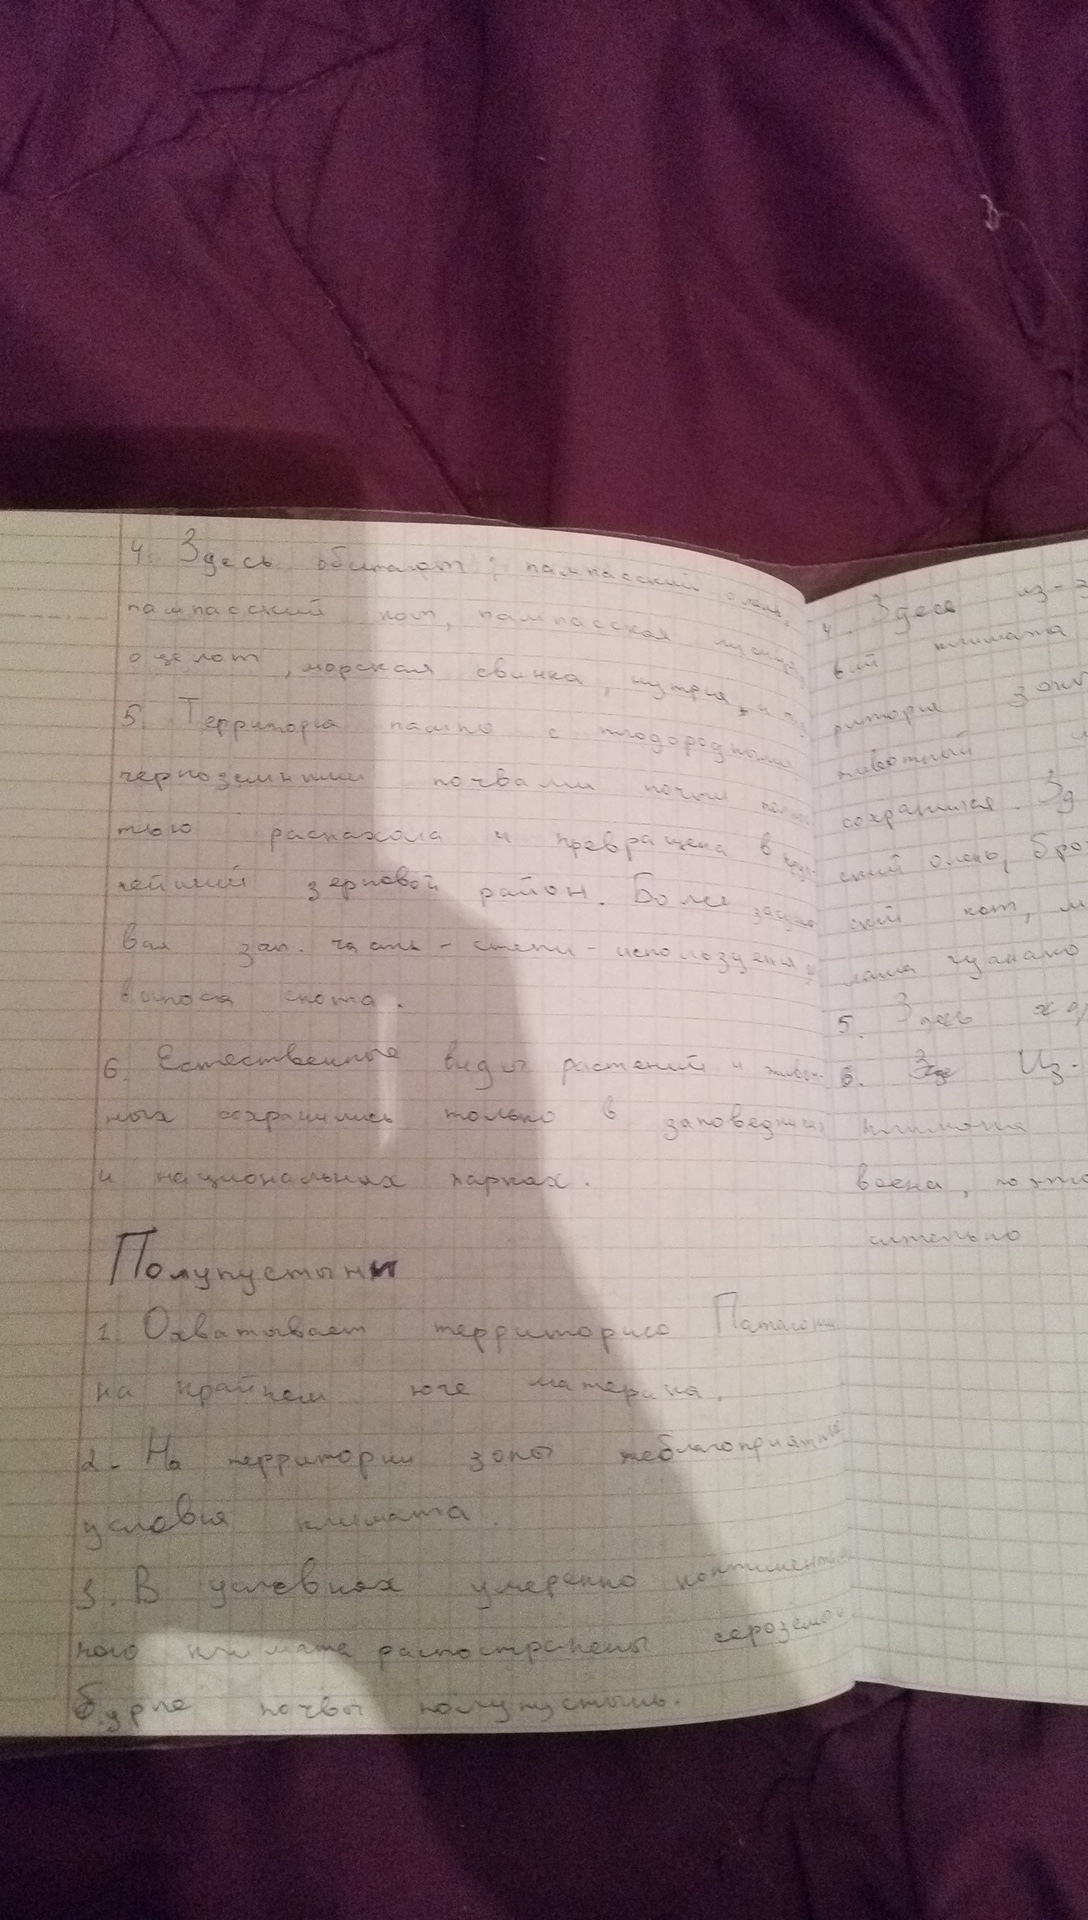 4. Здесь обитают: пампасский олень,
пампасский кот, пампасская
оцелот, морская свинка, нутрия, и
5. Территория пампо с плодородными
черноземными почвами почти
тью распахола и превращена в
нейший зерновой район. Более
вая зап. часть - степи - использ
выпаса скота.
6. Естественные виды растений и живот-
ных сохранились только в заповедниках
и национальных парках.
Полупустыни
1. Охватывает территорию Патагони
на крайнем юге материка.
2. На территории зоны неблагоприятные
условия климата.
3. В условиях умеренно континенталь
ного климата распостранены сероземо
бурые почвы полупустынь.
4. Здесь из-з
вий климата
ритория зоны
животный
сохранился. Зд
ский олень, бро
ский кот, м
лама гуанако
5. Здесь
6. Из-
климата
воена, поэто
ительно